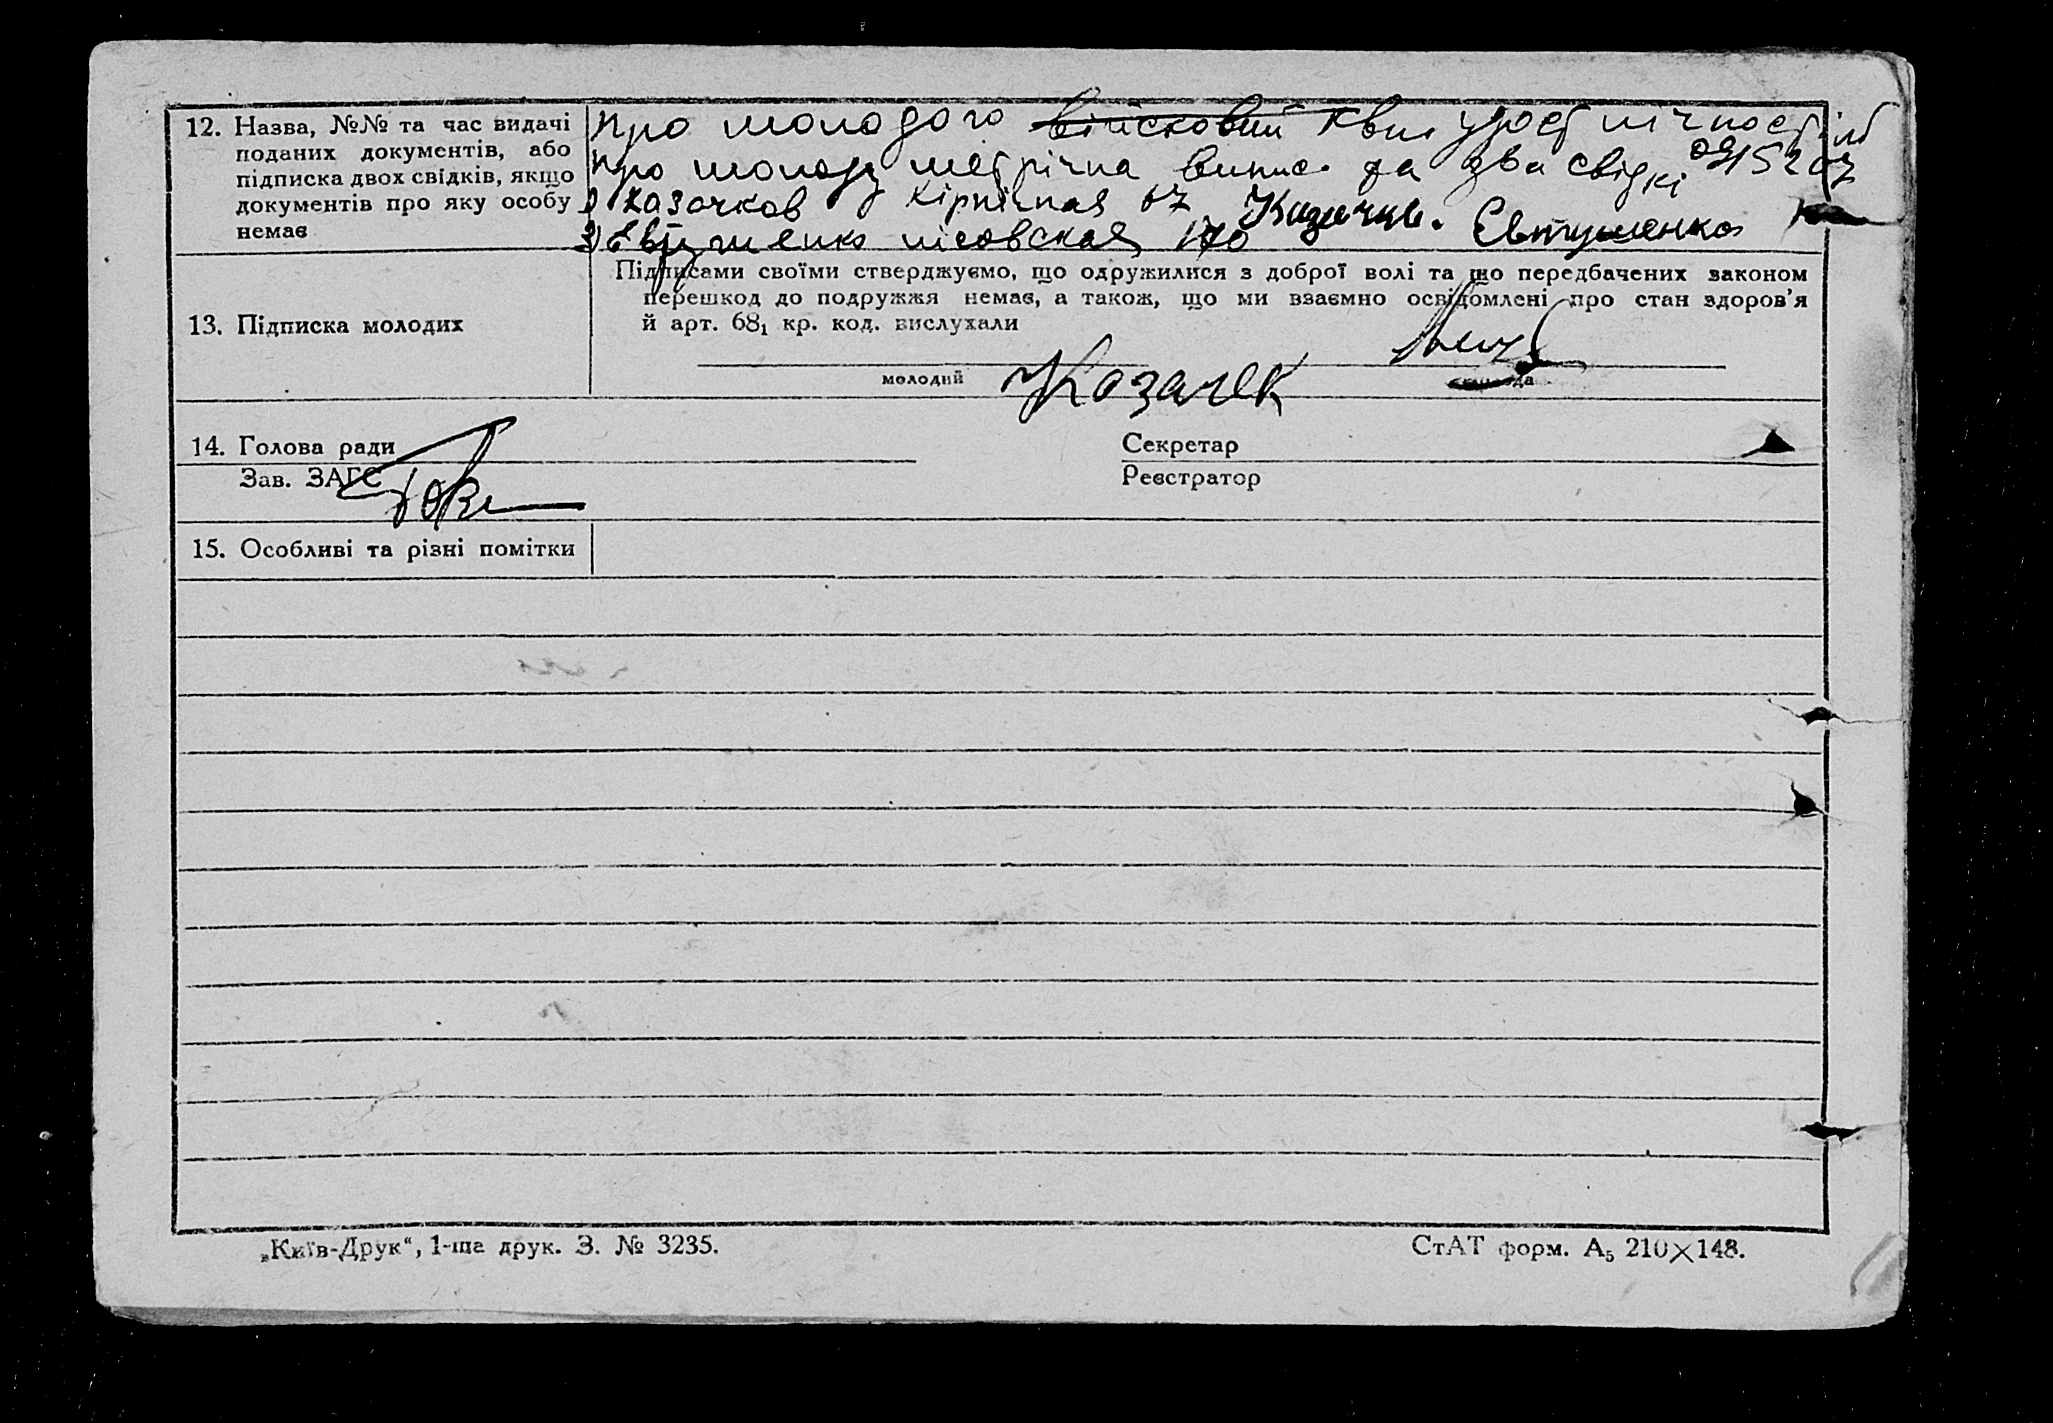 12. Назва, №№ та час видачі
поданих документів, або
підписка двох свідків, якщо
документів про яку особу
немає
про молодого військовий квит
про молоду метрічна випис. та два свідкі
1) Казачков Кірпічная 67
2) Евтушенко 170 Євтушенко
13. Підписка молодих
Підписами своїми стверджуємо, що одружилися з доброї волі та що передбачених законом
перешкод до подружжя немає, а також, що ми взаємно освідомлені про стан здоров'я
й арт. 68₁ кр. код. вислухали
молодий Козачек
14. Голова ради
Секретар
Зав. ЗАГС
Реєстратор
15. Особливі та різні помітки
„Київ-Друк“, 1-ша друк. З. № 3235.
СтАТ форм. А₅ 210×148.